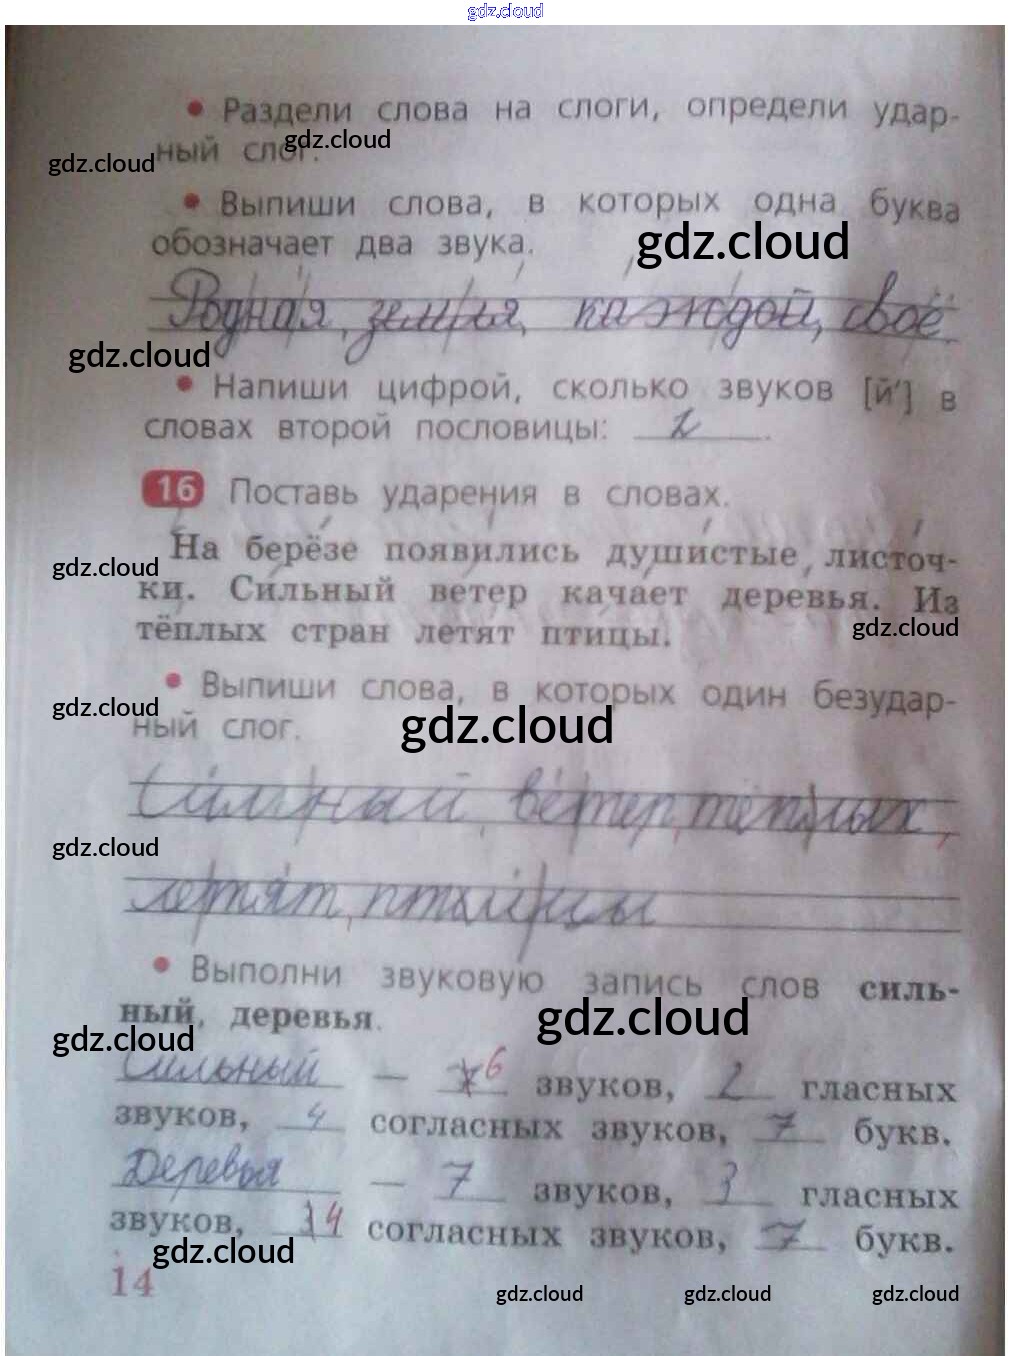 gdz.cloud
• Раздели слова на слоги, определи удар-
ный слог.
gdz.cloud
gdz.cloud
• Выпиши слова, в которых одна буква
обозначает два звука.
gdz.cloud
Родная, земля, каждой, своё
gdz.cloud
• Напиши цифрой, сколько звуков [й'] в
словах второй пословицы: 2.
16 Поставь ударения в словах.
На берёзе появились душистые листоч-
gdz.cloud
ки. Сильный ветер качает деревья. Из
тёплых стран летят птицы.
gdz.cloud
• Выпиши слова, в которых один безудар-
ный слог.
gdz.cloud
gdz.cloud
Сильный, ветер, тёплых,
gdz.cloud
летят, птицы
• Выполни звуковую запись слов силь-
ный, деревья.
gdz.cloud
gdz.cloud
Сильный — 6 звуков, 2 гласных
звуков, 4 согласных звуков, 7 букв.
Деревья — 7 звуков, 3 гласных
звуков, 4 согласных звуков, 7 букв.
gdz.cloud
14
gdz.cloud gdz.cloud gdz.cloud